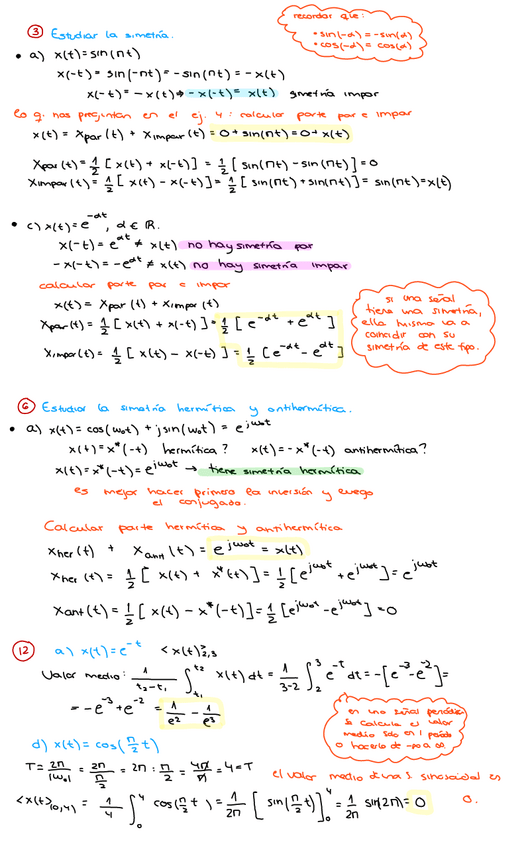 recordar que:
• sin(-α) = -sin(α)
• cos(-α) = cos(α)
③ Estudiar la simetría.
• a) x(t) = sin(πt)
x(-t) = sin(-πt) = -sin(πt) = -x(t)
x(-t) = -x(t) → -x(-t) = x(t) simetría impar
lo q. nos preguntan en el ej. 4: calcular parte par e impar
x(t) = Xpar(t) + Ximpar(t) = 0 + sin(πt) = 0 + x(t)
Xpar(t) = 1/2 [x(t) + x(-t)] = 1/2 [sin(πt) - sin(πt)] = 0
Ximpar(t) = 1/2 [x(t) - x(-t)] = 1/2 [sin(πt) + sin(πt)] = sin(πt) = x(t)
• c) x(t) = e^-αt, α ∈ ℝ.
x(-t) = e^αt ≠ x(t) no hay simetría par
-x(-t) = -e^αt ≠ x(t) no hay simetría impar
calcular parte par e impar
x(t) = Xpar(t) + Ximpar(t)
Xpar(t) = 1/2 [x(t) + x(-t)] = 1/2 [e^-αt + e^αt]
Ximpar(t) = 1/2 [x(t) - x(-t)] = 1/2 [e^-αt - e^αt]
si una señal
tiene una simetría,
ella misma va a
coincidir con su
simetría de este tipo.
⑥ Estudiar la simetría hermítica y antihermítica.
• a) x(t) = cos(ω₀t) + jsin(ω₀t) = e^jω₀t
x(t) = x*(-t) hermítica? x(t) = -x*(-t) antihermítica?
x(t) = x*(-t) = e^jω₀t → tiene simetría hermítica
es mejor hacer primero la inversión y luego
el conjugado.
Calcular parte hermítica y antihermítica
Xher(t) + Xant(t) = e^jω₀t = x(t)
Xher(t) = 1/2 [x(t) + x*(-t)] = 1/2 [e^jω₀t + e^jω₀t] = e^jω₀t
Xant(t) = 1/2 [x(t) - x*(-t)] = 1/2 [e^jω₀t - e^jω₀t] = 0
⑫ a) x(t) = e^-t <x(t)>2,3
Valor medio: 1/(t₂-t₁) ∫t₁^t₂ x(t) dt = 1/(3-2) ∫2^3 e^-t dt = -[e^-3 - e^-2] =
= -e^-3 + e^-2 = 1/e² - 1/e³
en una señal periódica
se calcula el valor
medio solo en 1 periodo
o hacerlo de -∞ a ∞
d) x(t) = cos(π/2 t)
T = 2π/|ω₀| = 2π/(π/2) = 2π : π/2 = 4π/π = 4 = T
el valor medio de una s. sinosoidal es
0.
<x(t)>(0,4) = 1/4 ∫0^4 cos(π/2 t) = 1/2π [sin(π/2 t)]0^4 = 1/2π sin(2π) = 0